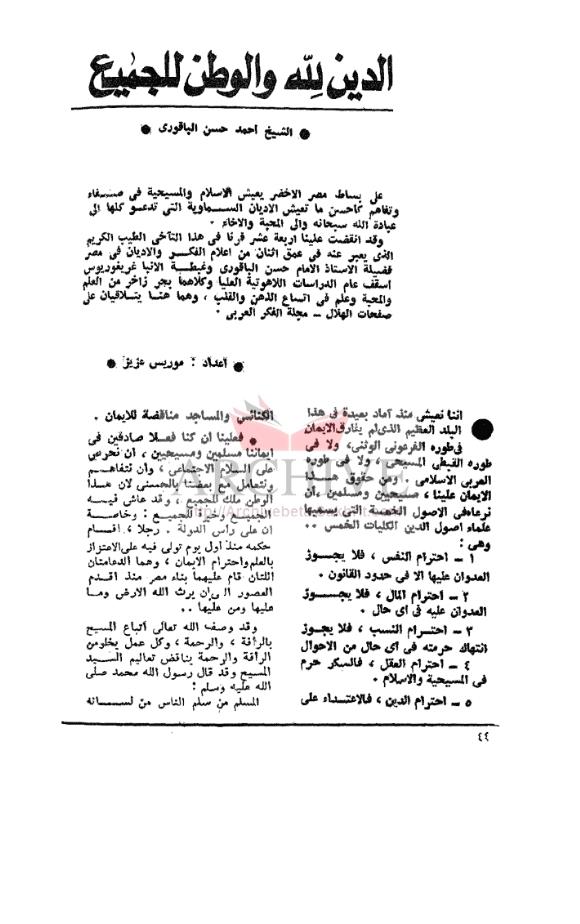 الدين لله والوطن للجميع
● الشيخ أحمد حسن الباقورى ●
على بساط مصر الأخضر يعيش الاسلام والمسيحية فى صفاء
وتفاهم كأحسن ما تعيش الأديان السماوية التى تدعو كلها الى
عبادة الله سبحانه والى المحبة والاخاء .
وقد انقضت علينا أربعة عشر قرنا فى هذا التآخى الطيب الكريم
الذى يعبر عنه فى عمق اثنان من أعلام الفكر والأديان فى مصر
فضيلة الاستاذ الامام حسن الباقورى وغبطة الأنبا غريغوريوس
أسقف عام الدراسات اللاهوتية العليا وكلاهما بحر زاخر من العلم
والمحبة وعلم فى اتساع الذهن والقلب ، وهما هنا يتلاقيان على
صفحات الهلال ــ مجلة الفكر العربى .
● اعداد : موريس عزيز ●
● اننا نعيش منذ آماد بعيدة فى هذا
البلد العظيم الذى لم يفارق الايمان
فى طوره الفرعونى الوثنى، ولا فى
طوره القبطى المسيحى ، ولا فى طوره
العربى الاسلامى . ومن حقوق هذا
الايمان علينا ، مسيحيين ومسلمين ، أن
نرعاه فى الأصول الخمسة التى يسميها
علماء أصول الدين الكليات الخمس ..
وهى :
١ ــ احترام النفس ، فلا يجوز
العدوان عليها الا فى حدود القانون .
٢ ــ احترام المال ، فلا يجوز
العدوان عليه فى أى حال .
٣ ــ احترام النسب ، فلا يجوز
انتهاك حرمته فى أى حال من الأحوال
٤ ــ احترام العقل ، فالسكر حرم
فى المسيحية والاسلام .
٥ ــ احترام الدين ، فالاعتداء على
الكنائس والمساجد مناقضة للايمان .
● فعلينا ان كنا فعلا صادقين فى
ايماننا مسلمين ومسيحيين ، أن نحرص
على السلام الاجتماعى ، وأن نتفاهم
ونتعامل مع بعضنا بالحسنى لأن هذا
الوطن ملك للجميع ، وقد عاش فيه
الجميع وخيره للجميع : وخاصة
ان على رأس الدولة . رجلا ، أقام
حكمه منذ أول يوم تولى فيه على الاعتزاز
بالعلم واحترام الايمان ، وهما الدعامتان
اللتان قام عليهما بناء مصر منذ أقدم
العصور الى أن يرث الله الأرض وما
عليها ومن عليها ..
وقد وصف الله تعالى أتباع المسيح
بالرأفة ، والرحمة ، وكل عمل يخلو من
الرأفة والرحمة يناقض تعاليم السيد
المسيح وقد قال رسول الله محمد صلى
الله عليه وسلم :
المسلم من سلم الناس من لسانه
ARCHIVE
٤٤